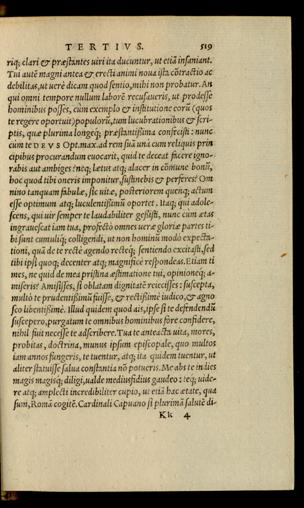 TERTIVS. 519
riq; clari & præstantes uiri ita ducuntur, ut etiā insaniant.
Tui autē magni antea & erecti animi noua ista cōtractio ac
debilitas, ut uerè dicam quod sentio, mihi non probatur. An
qui omni tempore nullum laborē recusaueris, ut prodesse
hominibus posses, cùm exemplo & institutione eorū (quos
te regere oportuit) populorū, tum lucubrationibus & scri
ptis, quæ plurima longeq; præstantißima confecisti: nunc
cum te DEVS Opt. max. ad rem suā unà cum reliquis prin
cipibus procurandum euocarit, quid te deceat facere igno-
rabis aut ambiges? neq; lętus atq; alacer in cōmune bonū,
hoc quod tibi oneris imponitur, sustinebis & perferes? Om
nino tanquam fabulæ, sic uitæ, posteriorem quenq; actum
esse optimum atq; luculentißimū oportet. Itaq; qui adole-
scens, qui uir semper te laudabiliter geßisti, nunc cum ætas
ingrauescat iam tua, profectò omnes ueræ gloriæ partes ti-
bi sunt cumuliq; colligendi, ut non hominū modo expecta-
tioni, quā de te rectè agendo recteq; sentiendo excitasti, sed
tibi ipsi quoq; decenter atq; magnificè respondeas. Etiam ti
mes, ne quid de mea pristina æstimatione tui, opinioneq; a-
miseris? Amisisses, si oblatam dignitatē reiecisses: suscepta,
multò te prudentißimū fuisse, & rectißimè iudico, & agno
sco libentißimè. Illud quidem quod ais, ipse si te defendendū
suscepero, purgatum te omnibus hominibus fore confidere,
nihil fuit necesse te adscribere. Tua te anteacta uita, mores,
probitas, doctrina, munus ipsum episcopale, quo multos
iam annos fungeris, te tuentur, atq; ita quidem tuentur, ut
aliter statuisse salua constantia nō potueris. Me abs te in dies
magis magisq; diligi, ualde mediusfidius gaudeo: teq; uide-
re atq; amplecti incredibiliter cupio, ut etiā hac ætate, qua
sum, Romā cogitē. Cardinali Capuano si plurimā salutē di-
Kk 4